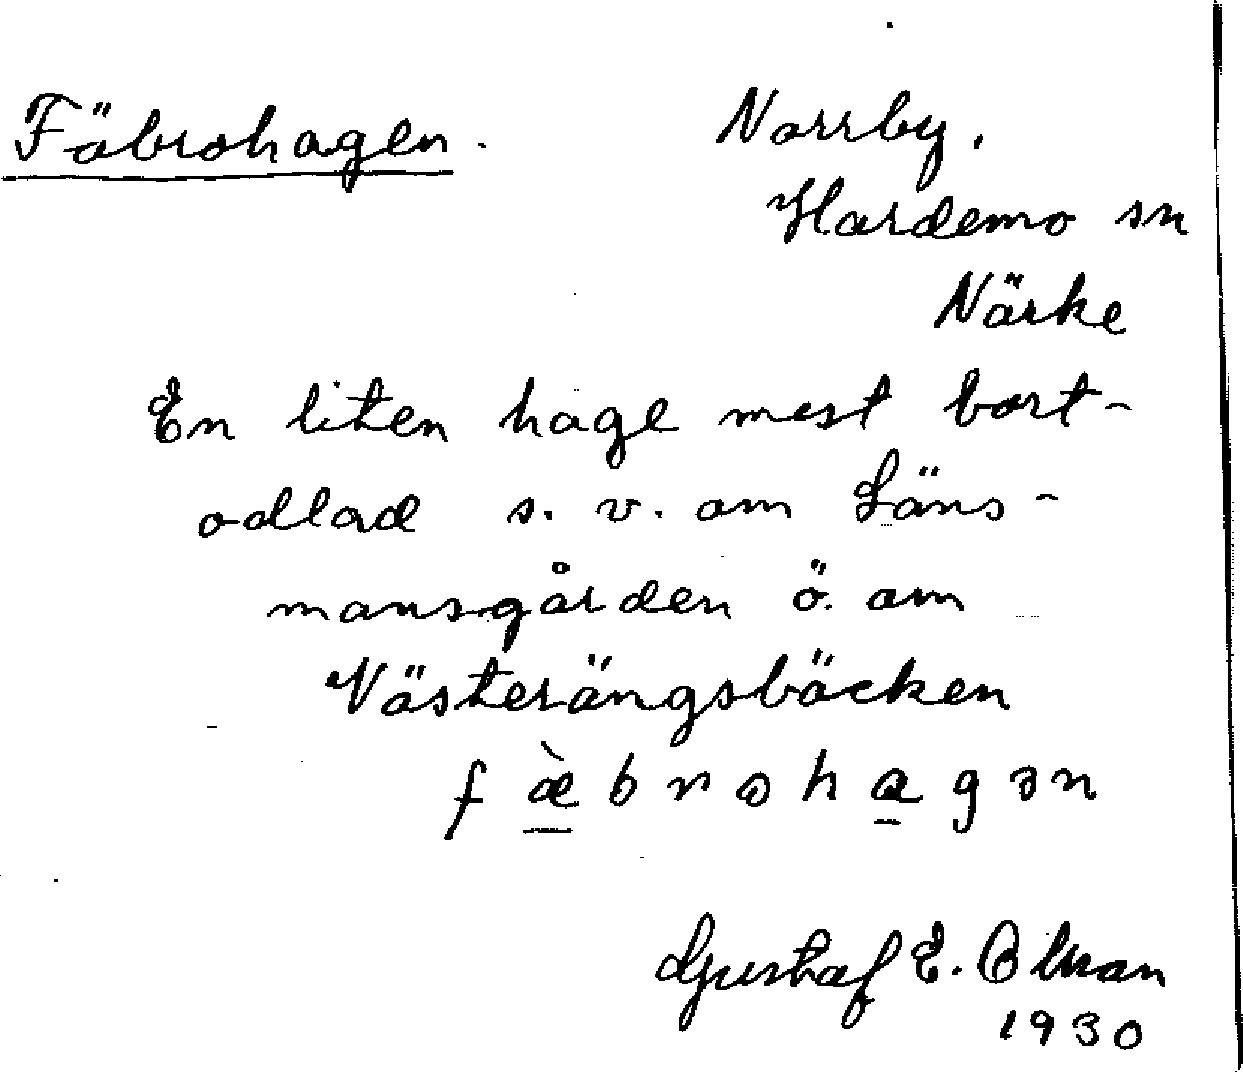 Fäbrohagen. Norrby,
Hardemo sn
Närke
En liten hage mest bort-
odlad s. v. om Läns-
mansgården ö. om
Västerängsbäcken
fæ̀brɷhagən
Gustaf E. Olsson
1930